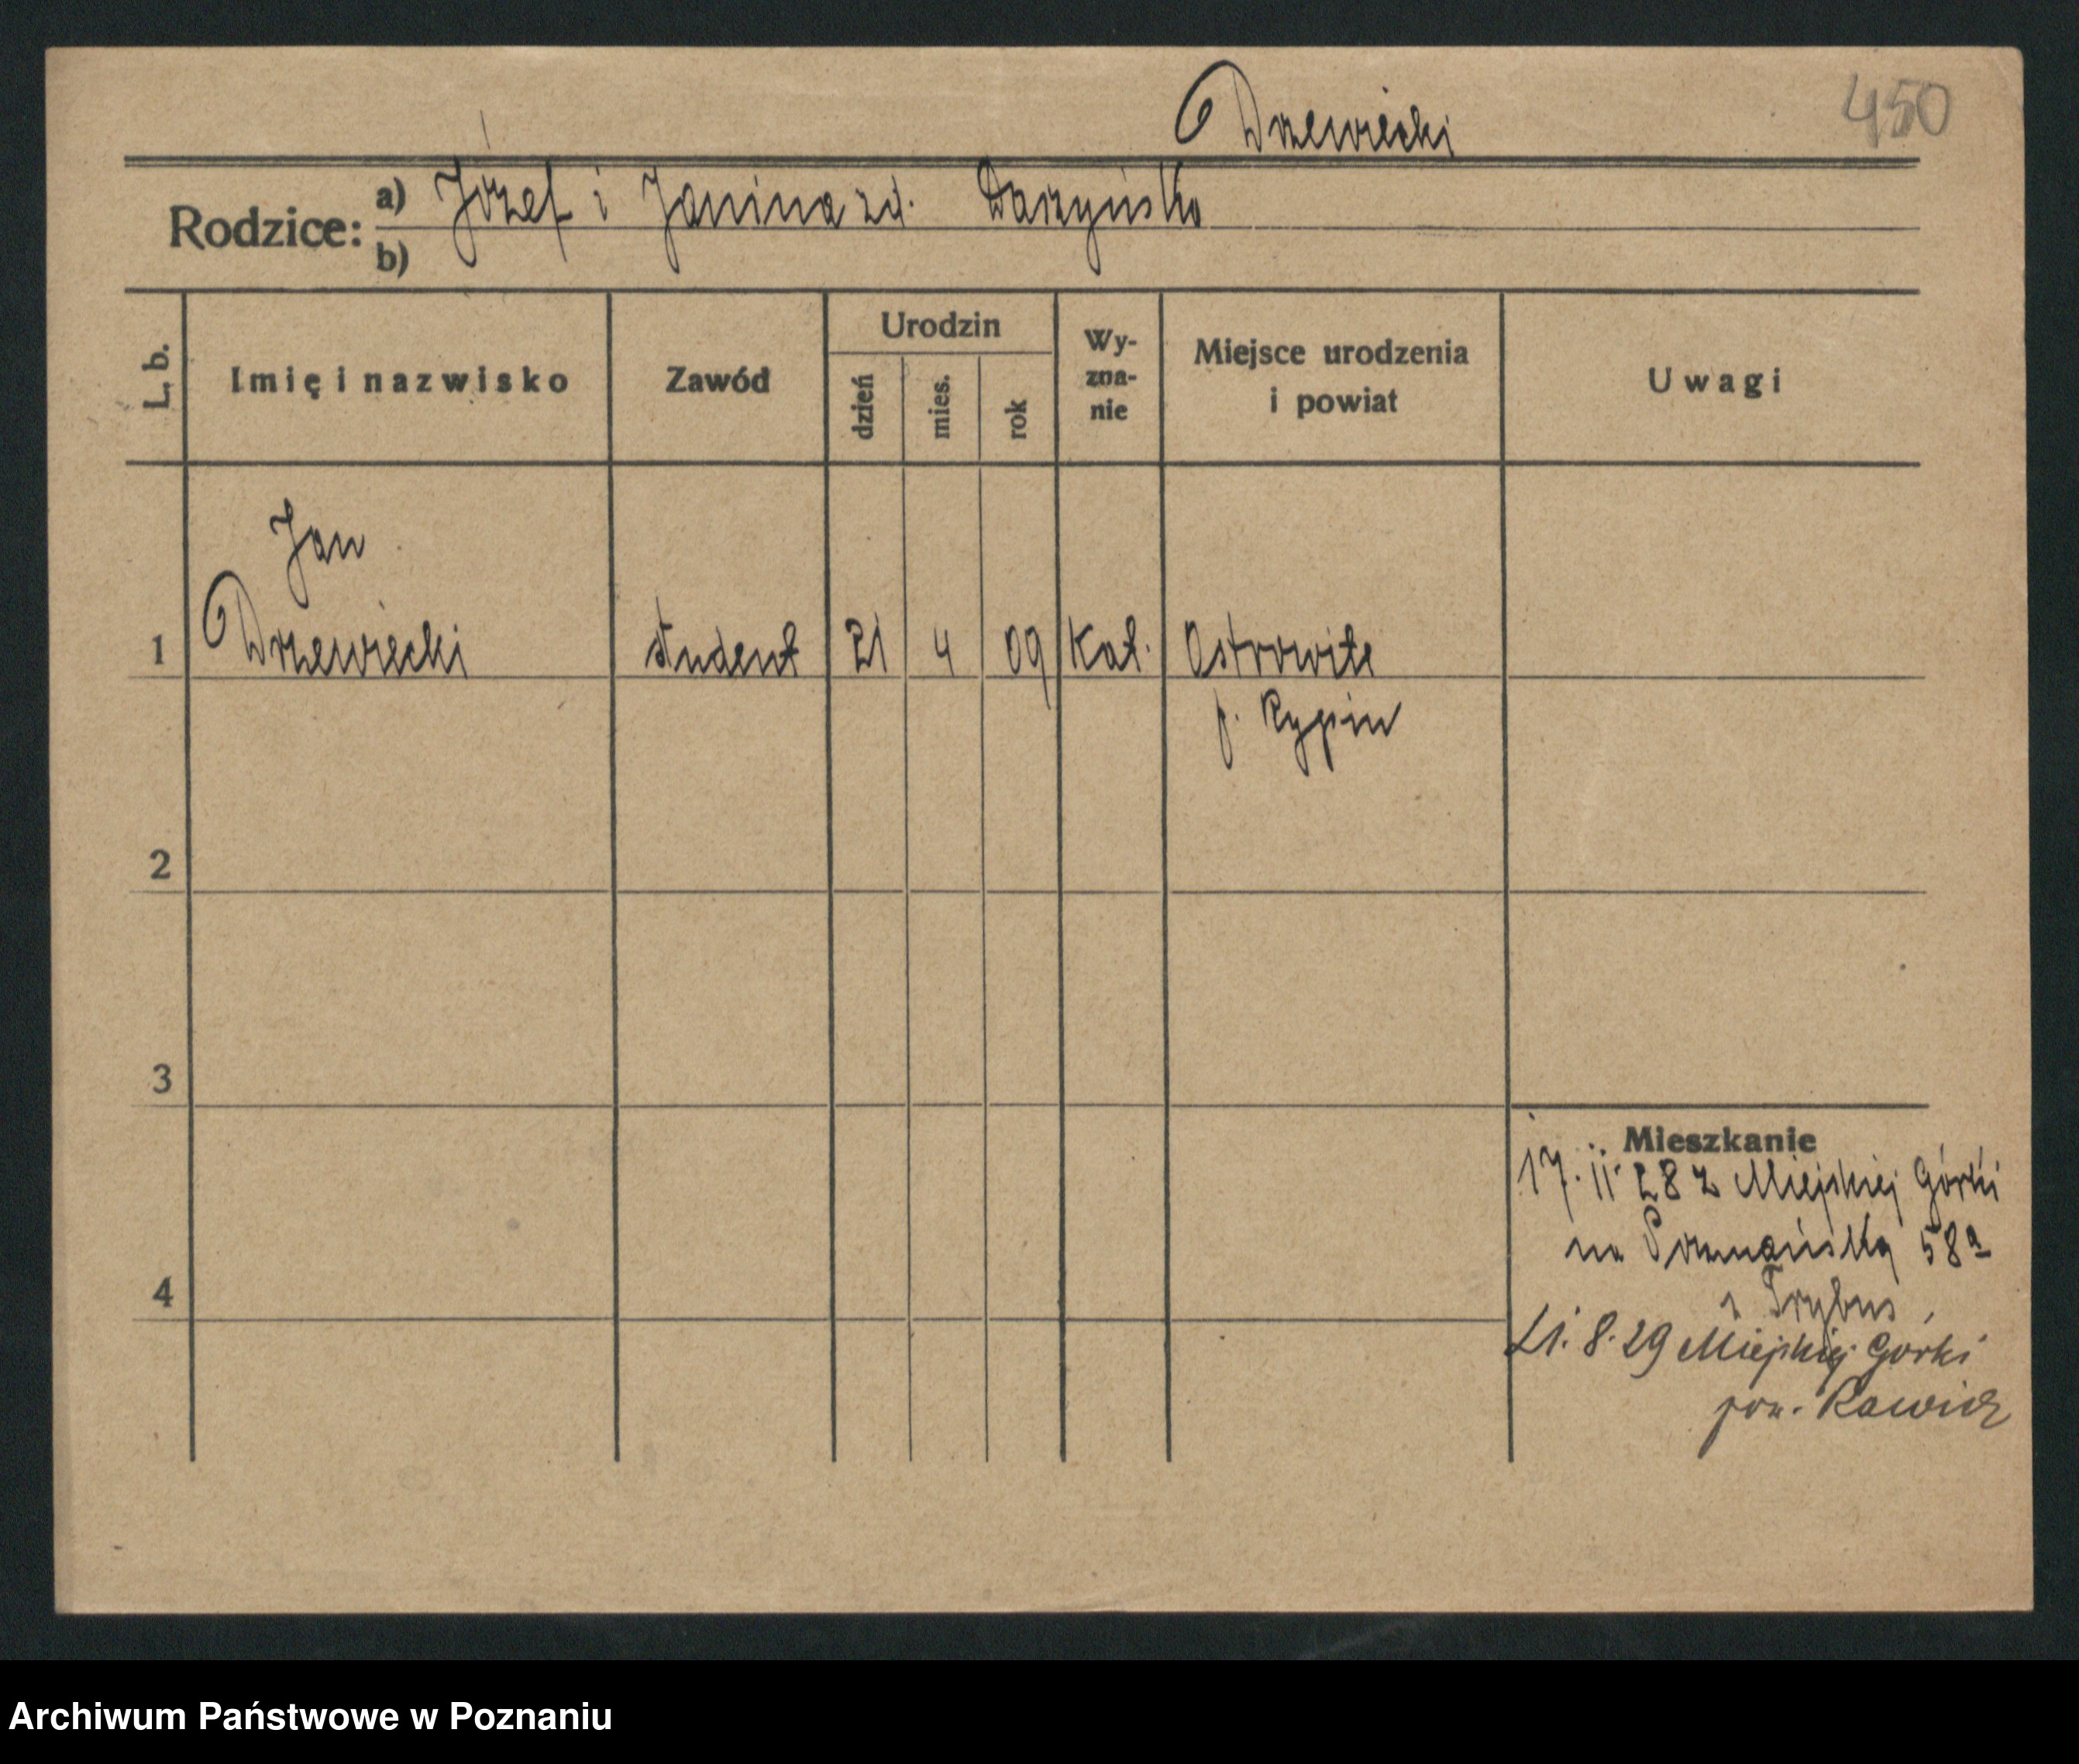 Drzewiecki
450
Rodzice: a) Józef i Janina zd. Daszyńska
b)
L. b.
Imię i nazwisko
Zawód
Urodzin
dzień
mies.
rok
Wy-
zna-
nie
Miejsce urodzenia
i powiat
Uwagi
Jan
1 Drzewiecki student 21 4 09 Kat. Ostrowite
p. Rypin
2
3
4
Mieszkanie
17. 11. 28 z Miejskiej Górki
na Poznańską 58a
Trybus
21. 8. 29 Miejskiej Górki
pow. Rawicz
Archiwum Państwowe w Poznaniu